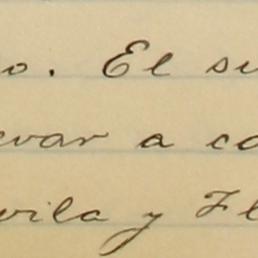 o. El su
evar a co
vila y Fl